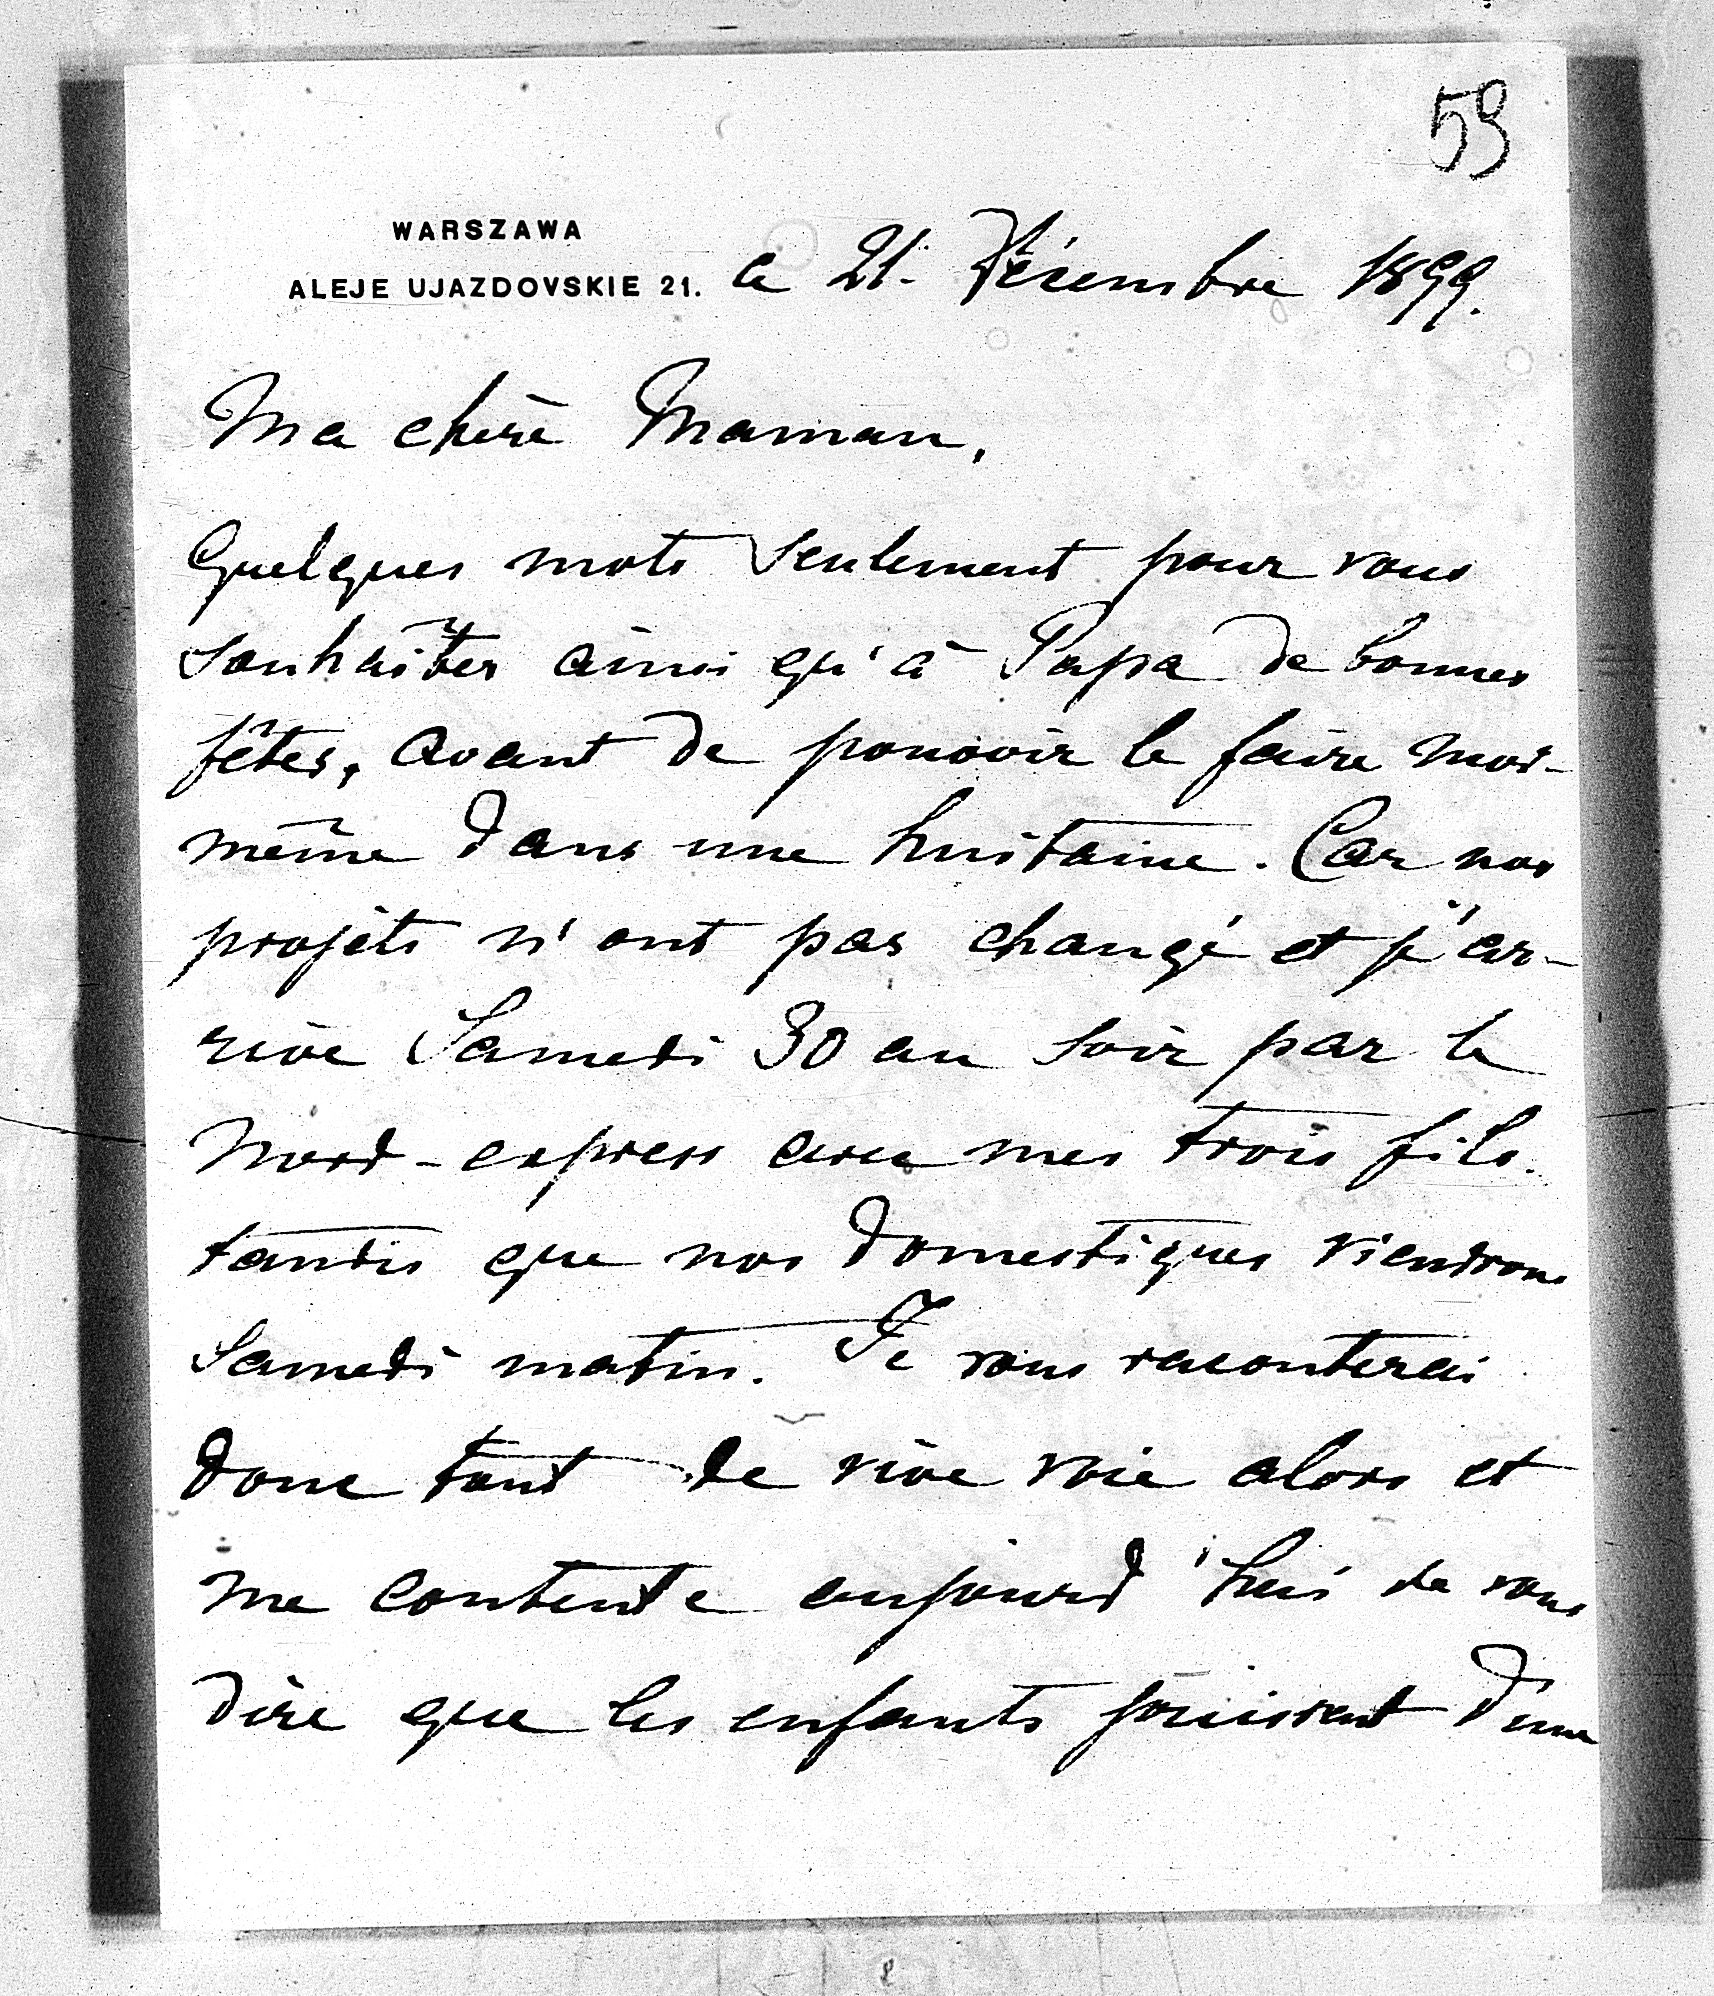 53
WARSZAWA
ALEJE UJAZDOVSKIE 21. ce 21. Décembre 1899.
Ma chère Maman,
Quelques mots seulement pour vous
souhaîter ainsi qu'à Papa de bonnes
fêtes, avant de pouvoir le faire moi-
même dans une huitaine. Car nos
projèts n'ont pas changé et j'ar-
rive Samedi 30 au soir par le
Nord-express avec mes trois fils.
tandis que nos domestiques viendrons
Samedi matin. Je vous raconterai
donc tout de vive voie alors et
me contente aujourd'hui de vous
dire que les enfants jouissent d'une